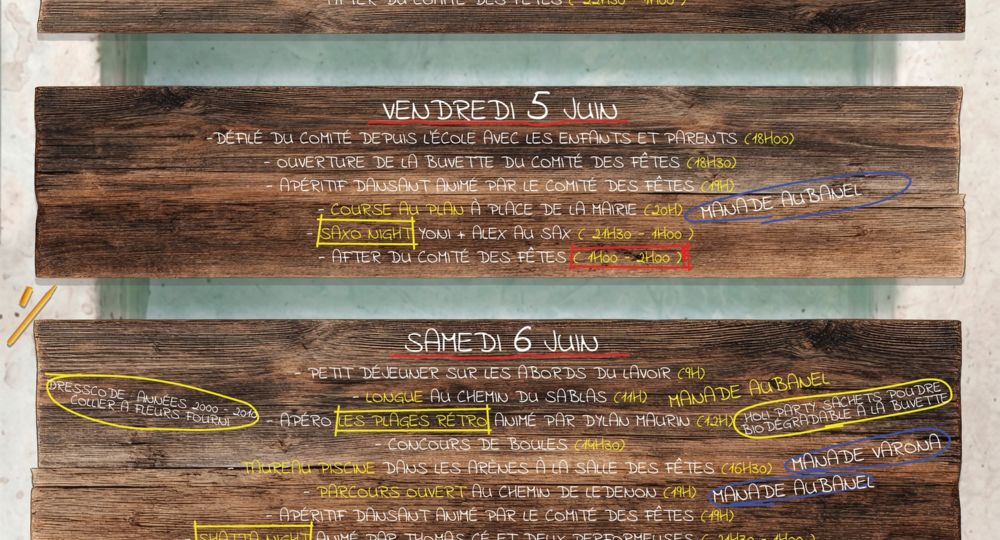 - AFTER DU COMITÉ DES FÊTES ( 22H30 - 1H00 )
VENDREDI 5 JUIN
- DÉFILÉ DU COMITÉ DEPUIS L'ÉCOLE AVEC LES ENFANTS ET PARENTS (18H00)
- OUVERTURE DE LA BUVETTE DU COMITÉ DES FÊTES (18H30)
- APÉRITIF DANSANT ANIMÉ PAR LE COMITÉ DES FÊTES (19H)
- COURSE AU PLAN À PLACE DE LA MAIRIE (20H) MANADE AUBANEL
- SAXO NIGHT YONI + ALEX AU SAX ( 21H30 - 1H00 )
- AFTER DU COMITÉ DES FÊTES ( 1H00 - 2H00 )
SAMEDI 6 JUIN
- PETIT DÉJEUNER SUR LES ABORDS DU LAVOIR (9H)
- LONGUE AU CHEMIN DU SABLAS (11H) MANADE AUBANEL
DRESSCODE, ANNÉES 2000 - 2010
COLLIER À FLEURS FOURNI
- APÉRO LES PLAGES RÉTRO ANIMÉ PAR DYLAN MAURIN (12H)
HOLI PARTY, SACHETS POUDRE
BIODÉGRADABLE À LA BUVETTE
- CONCOURS DE BOULES (14H30)
- TAUREAU PISCINE DANS LES ARÈNES À LA SALLE DES FÊTES (16H30) MANADE VARONA
- PARCOURS OUVERT AU CHEMIN DE LEDENON (19H) MANADE AUBANEL
- APÉRITIF DANSANT ANIMÉ PAR LE COMITÉ DES FÊTES (19H)
- SHATTA NIGHT ANIMÉ PAR THOMAS CÉ ET DEUX PERFORMEUSES ( 21H30 - 1H00 )